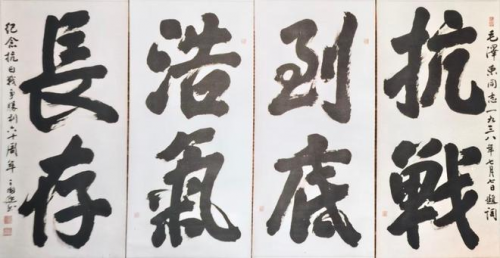 毛澤東同志一九三八年七月七題詞
抗戰
到底
浩氣
長存
紀念抗日戰爭勝利六十周年